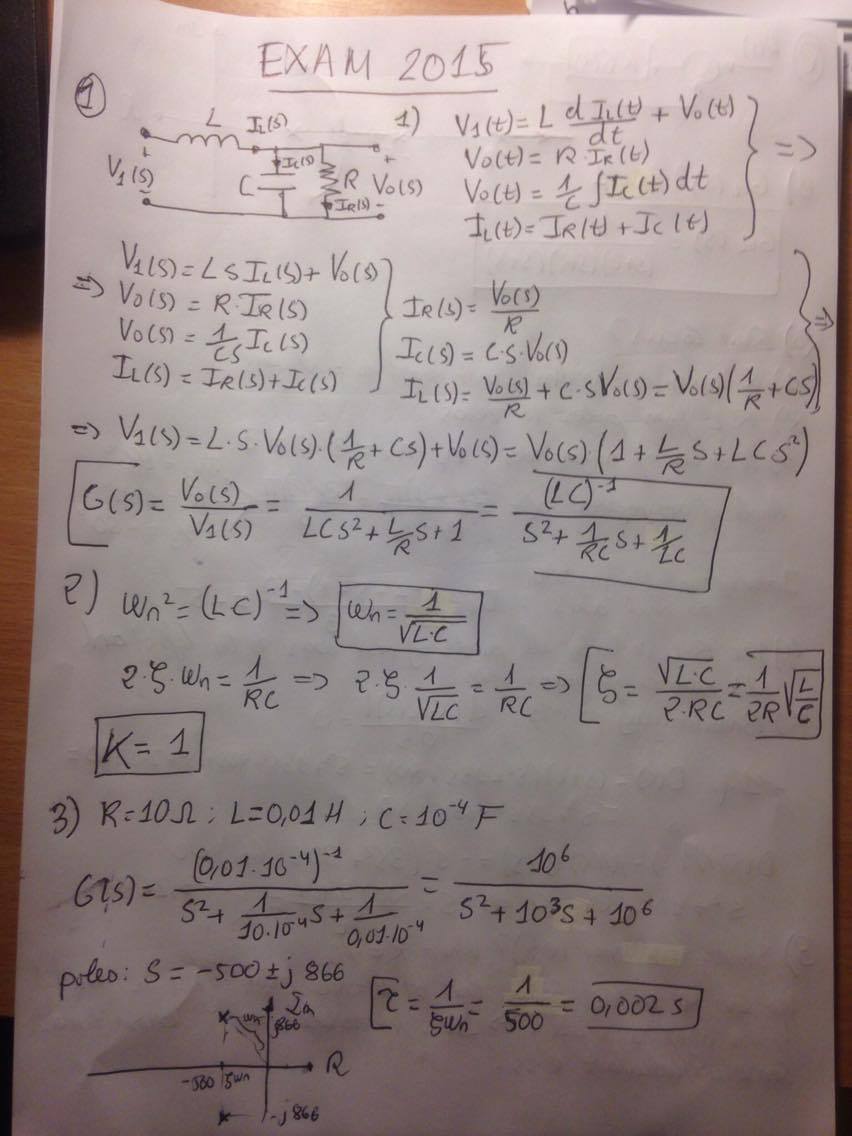 EXAM 2015
1
L IL(s)
V1(s) + - C IC(s) R IR(s) + V0(s) -
1) V1(t) = L dIL(t)/dt + V0(t)
V0(t) = R·IR(t)
V0(t) = 1/C ∫IC(t)dt
IL(t) = IR(t) + IC(t)
} =>
=> V1(s) = LSIL(s) + V0(s)
V0(s) = R·IR(s)
V0(s) = 1/CS IC(s)
IL(s) = IR(s) + IC(s)
} IR(s) = V0(s)/R
IC(s) = C·S·V0(s)
IL(s) = V0(s)/R + C·SV0(s) = V0(s)(1/R + CS)
} =>
=> V1(s) = L·S·V0(s)·(1/R + CS) + V0(s) = V0(s)·(1 + L/R S + LCS²)
G(s) = V0(s)/V1(s) = 1/(LCS² + L/R S + 1) = (LC)⁻¹/(S² + 1/RC S + 1/LC)
2) Wn² = (LC)⁻¹ => Wn = 1/√L·C
2·ξ·Wn = 1/RC => 2·ξ·1/√LC = 1/RC => ξ = √L·C/2·RC = 1/2R √L/C
K = 1
3) R = 10Ω ; L = 0,01H ; C = 10⁻⁴ F
G(s) = (0,01·10⁻⁴)⁻¹/(S² + 1/10·10⁻⁴ S + 1/0,01·10⁻⁴) = 10⁶/(S² + 10³S + 10⁶)
poles: S = -500 ± j866
τ = 1/ξWn = 1/500 = 0,002 s
Im
Wn j866
-500 ξWn R
-j866